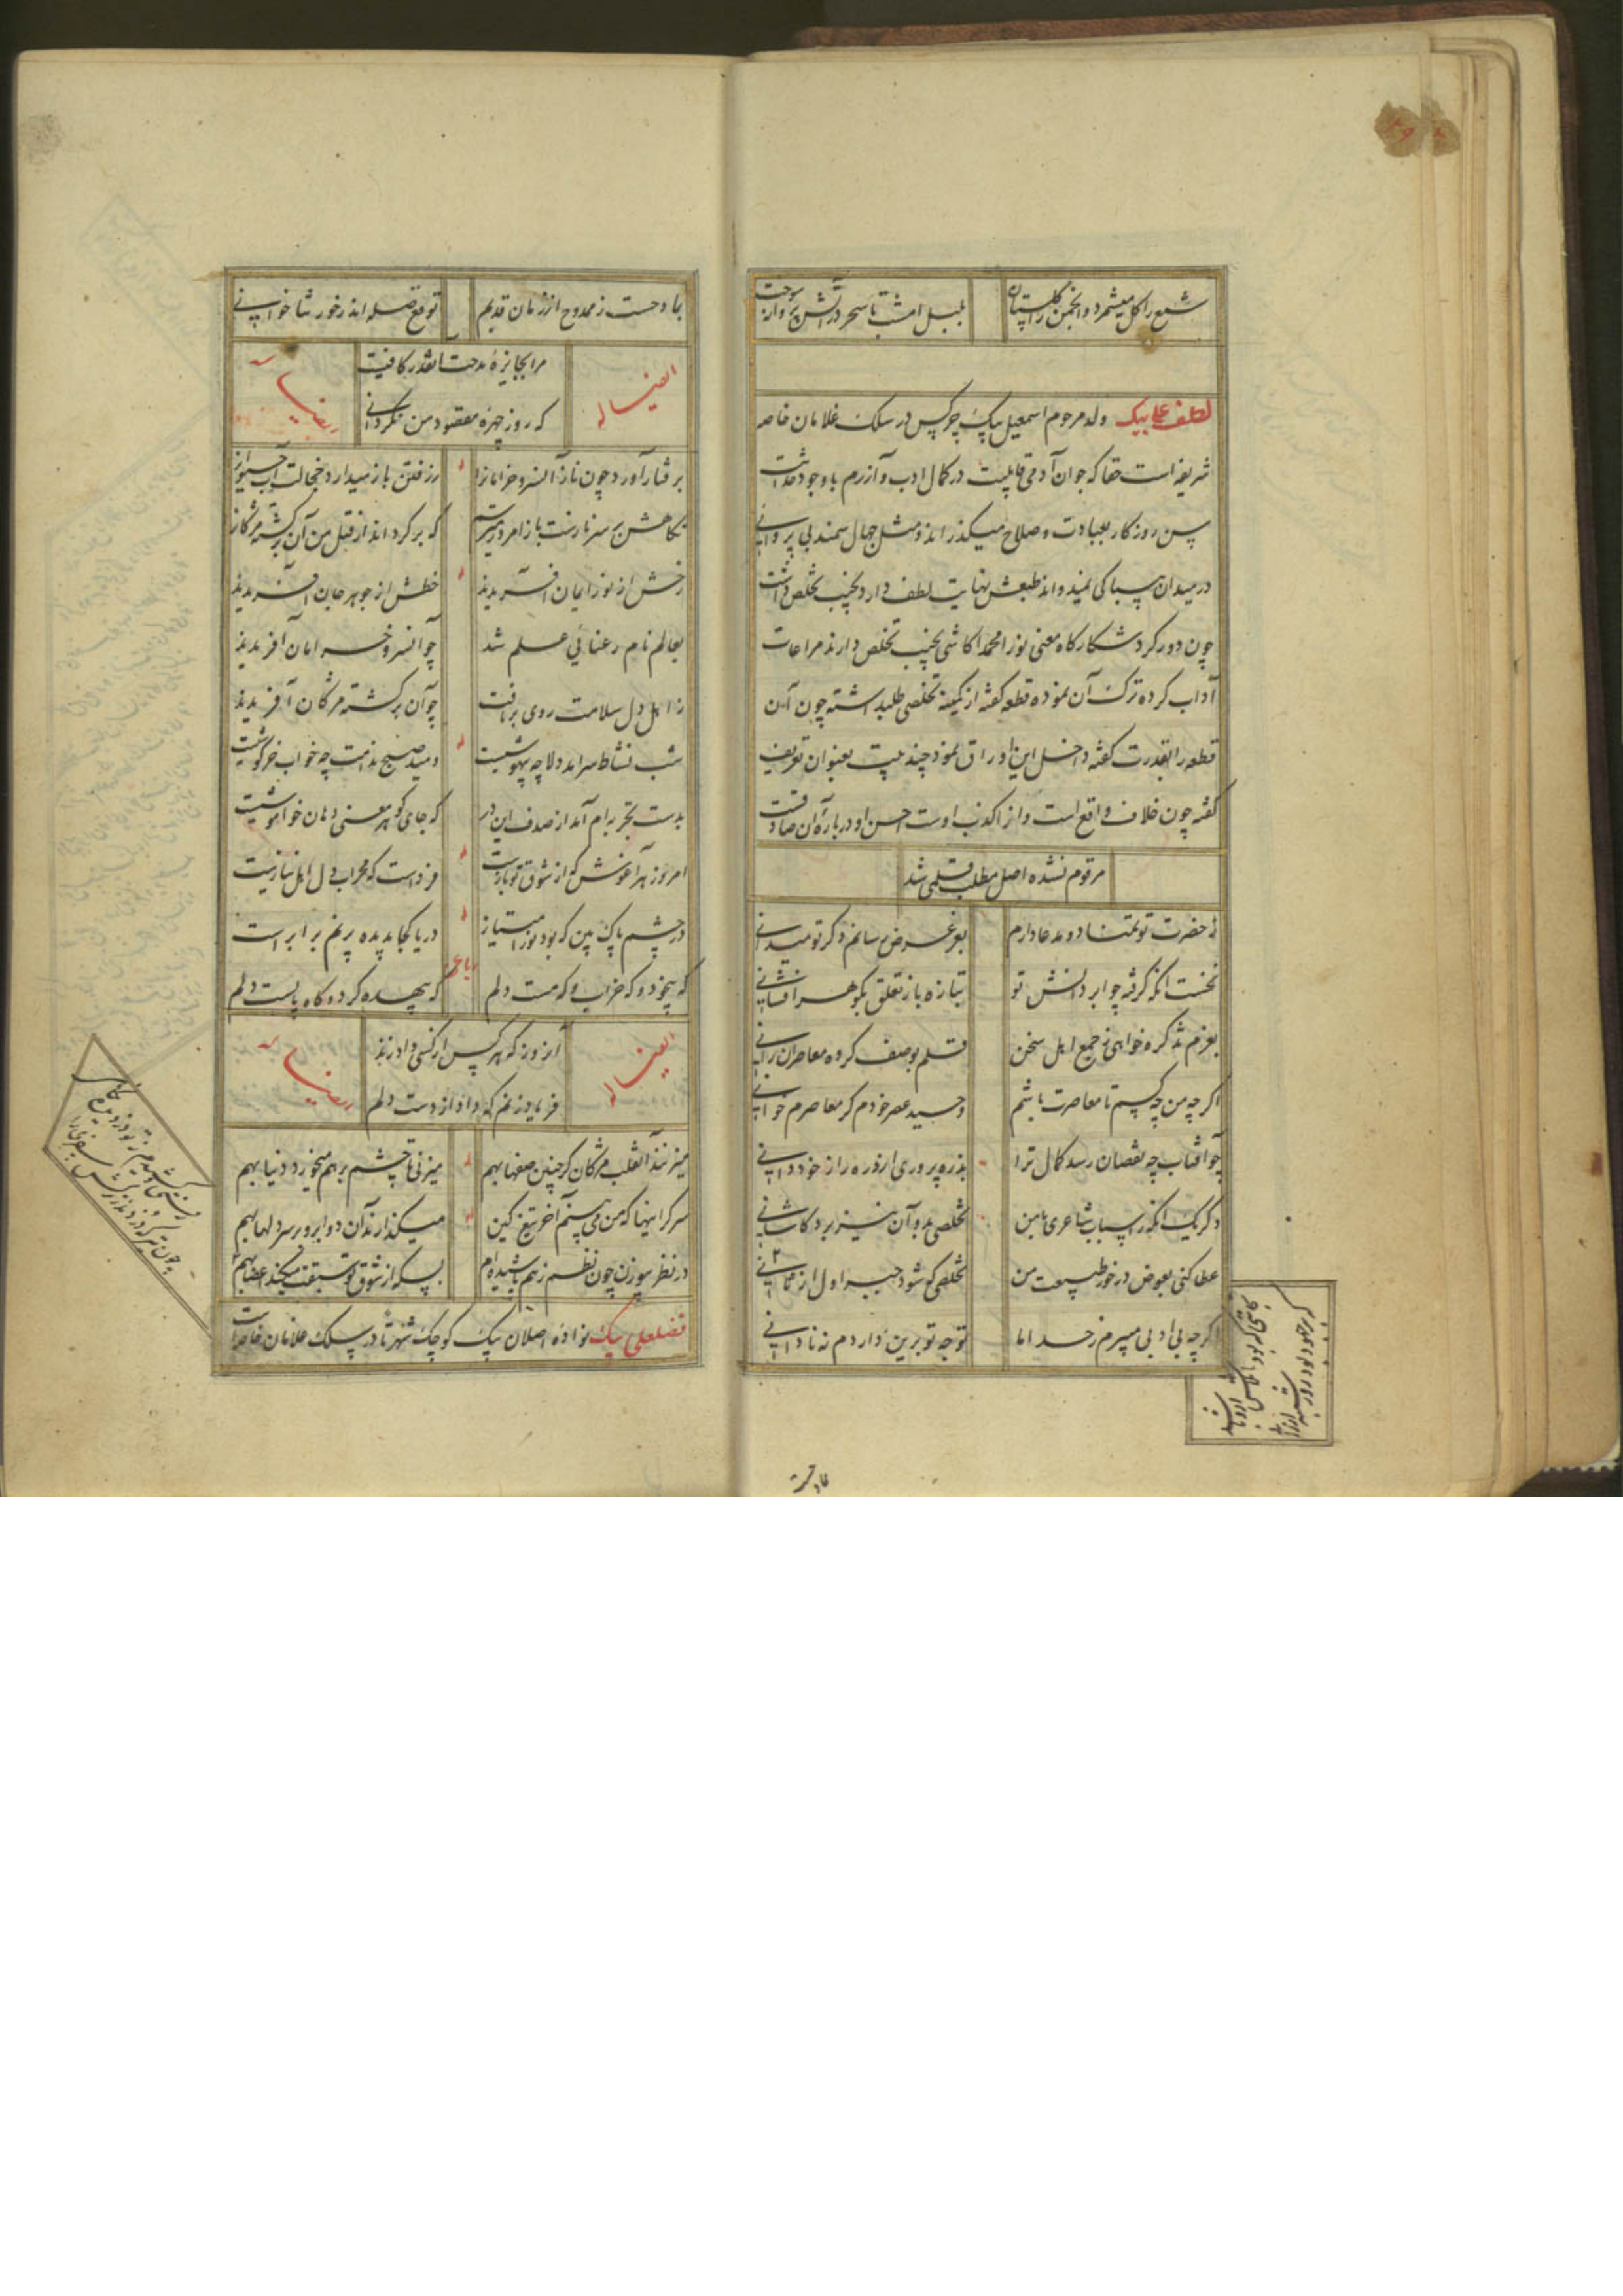 شمع را گل میشمرد و انجمن را گلستان
بلبل امشب تا سحر در آتش پروانه سوخت
لطفعلی بیک ولد مرحوم اسمعیل بیک چرکس در سلک غلامان خاصه
شریفه است حقا که جوان آدمی قابلیست در کمال ادب و آزرم باوجود حداثت
سن روزگار بعبادت و صلاح میکذراند و مثل جهال سمند بی پروایی
در میدان بیباکی نمیدواند طبعش نهایت لطف دارد نجیب تخلص داشت
چون دور کرد شکارگاه معنی نورا محمدا کاشی نجیب تخلص دارند مراعات
آداب کرده ترک آن نموده قطعه گفته از کمینه تخلصی طلبداشته چون آن
قطعه را بقدرت گفته داخل این اوراق نمود چند بیت بعنوان تعریف
گفته چون خلاف واقع است و از اکذب اوست احسن او درباره آن صادقست
مرقوم نشده اصل مطلب قلمی شد
ز حضرت تو تمنا دو مدعا دارم
بعرض عرض رسانم دگر تو میدانی
نخست آنکه گرفته چو ابر دانش تو
بتازه باز تعلق بگوهر افشانی
بعزم تذکره خواهی ز جمع اهل سخن
قلم بوصف گروه معاصران رانی
اگرچه من چه کسم تا معاصرت باشم
وحید عصر خودم گر معاصرم خوانی
چو آفتاب چه نقصان رسد کمال ترا
بذره پروری ار ذره را ز خود دانی
دگر یک آنکه ز اسباب شاعری با من
تخلصی بد و آن نیز برد کاشانی
عطا کنی بعوض در خور طبیعت من
تخلصی که شود جبیره اول از ثانی
اگرچه بی ادبی میبرم ز حد اما
توجه تو برین داردم نه نادانی
مادحست
بمادحست ز ممدوح از زمان قدیم
توقع صله اندر خور ثنا خوانی
مرا بجایزه مدحت اینقدر کافیست
که روز چهره مقصود من نگردانی
ایضا له
برفتار آورد چون ناز آن سرو خرامان را
ز رفتن باز میدارد خجالت آب حیوان را
نگاهش بر سر نازست باز امروز میترسم
که برگرداند از قتل من آن برگشته مژگان را
رخش از نور ایمان آفریدند
خطش از جوهر جان آفریدند
بعالم نام رعنائی علم شد
چو آن سرو خرامان آفریدند
ز اهل دل سلامت روی برتافت
چو آن برگشته مژگان آفریدند
شب نشاط سرآمد دلا چه بیهوشیست
دمید صبح ندامت چه خواب خرگوشیست
بدست تجربه ام آمد از صدف این در
که جای گوهر معنی دهان خاموشیست
امروز هر آغوش که از شوق تو بازست
فرداست که محراب دل اهل نیازست
در چشم پاک بین که بود نور امتیاز
دریا کجا بدیده پرنم برابر است
رباعی
که بیخود و که خراب و که مست دلم
که بیهده گرد و گاه پابست دلم
آنروز که هر کس از کسی داد زند
فریاد زنم که داد از دست دلم
ایضا له
میزنند آن قلب مژگان گر چنین صفها بهم
میزنی تا چشم برهم میخورد دنیا بهم
سرگرانیها که من می بینم آخر تیغ کین
میکذارند آن دو ابرو بر سر دلها بهم
در نظر سوزن چون نظم ز هم پاشیده ام
بسکه از شوق تو سبقت میکند اعضا بهم
فضلعلی بیک نواده اصلان بیک کوچک شهرتا در سلک غلامان خاصه است